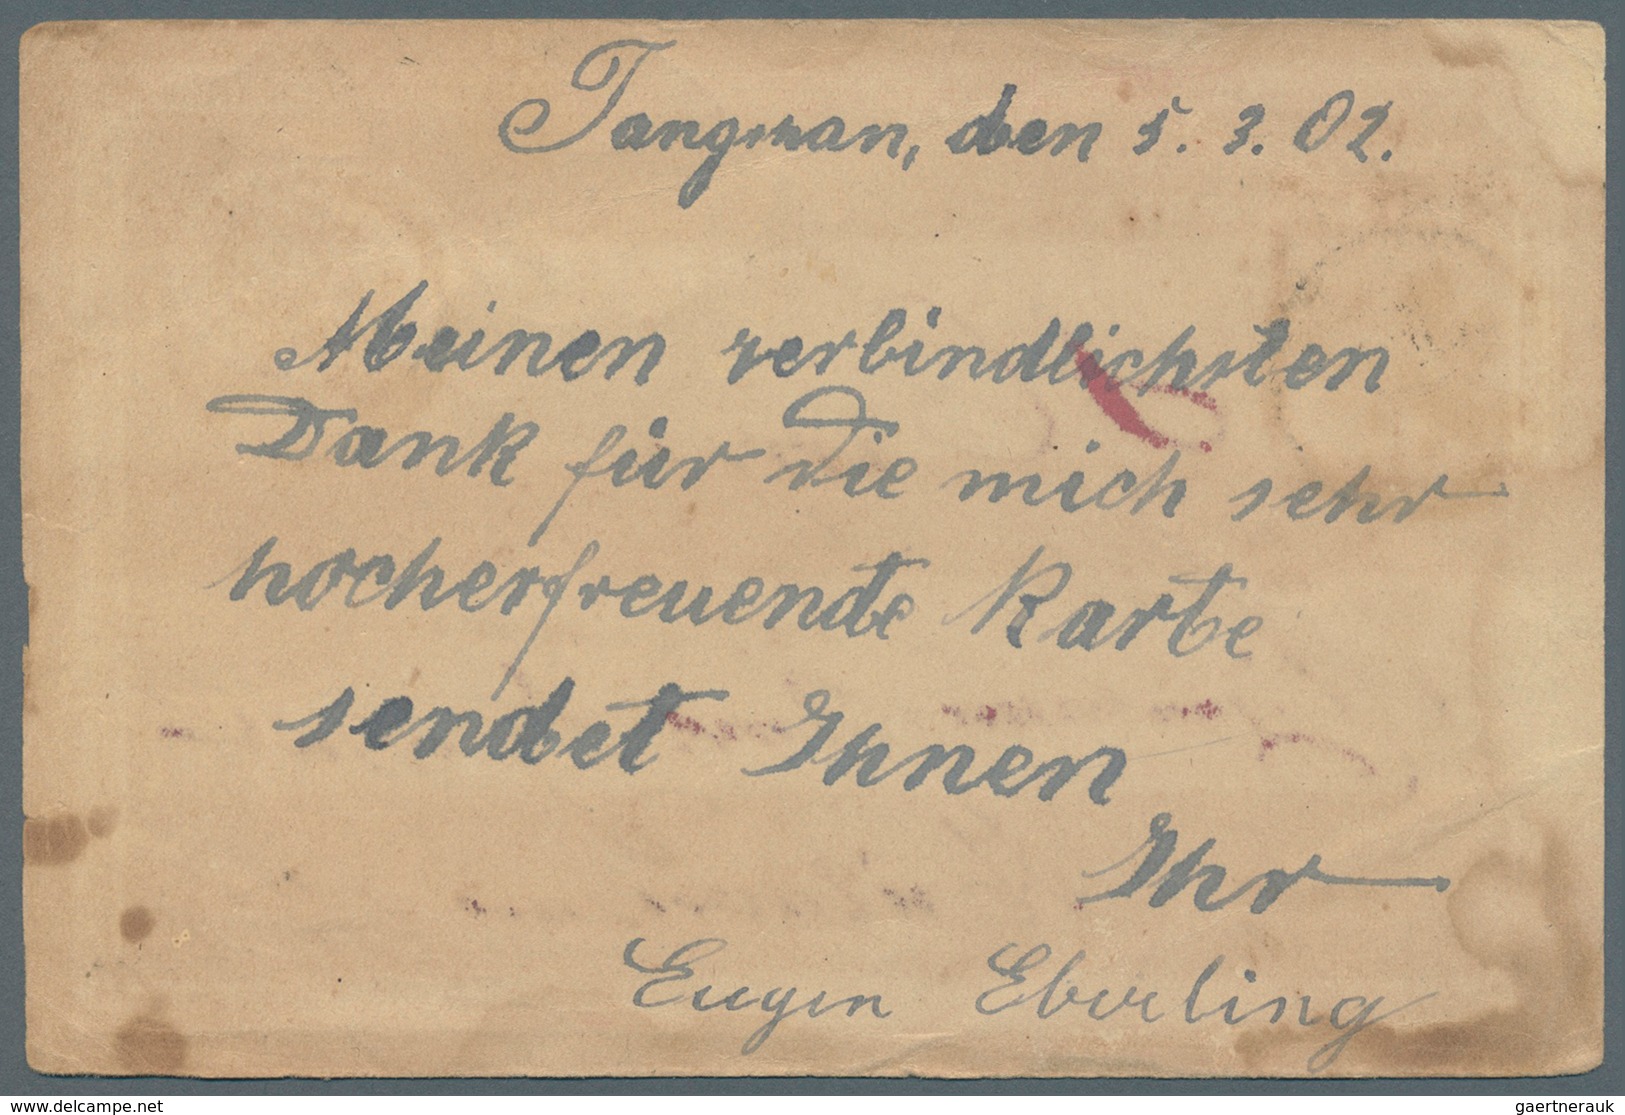 Tangman, den 5. 3. 02.
Meinen verbindlichsten
Dank für die mich sehr
hocherfreuende Karte
sendet Ihnen
Ihr
Eugen Eberling
www.delcampe.net
gaertnerauk